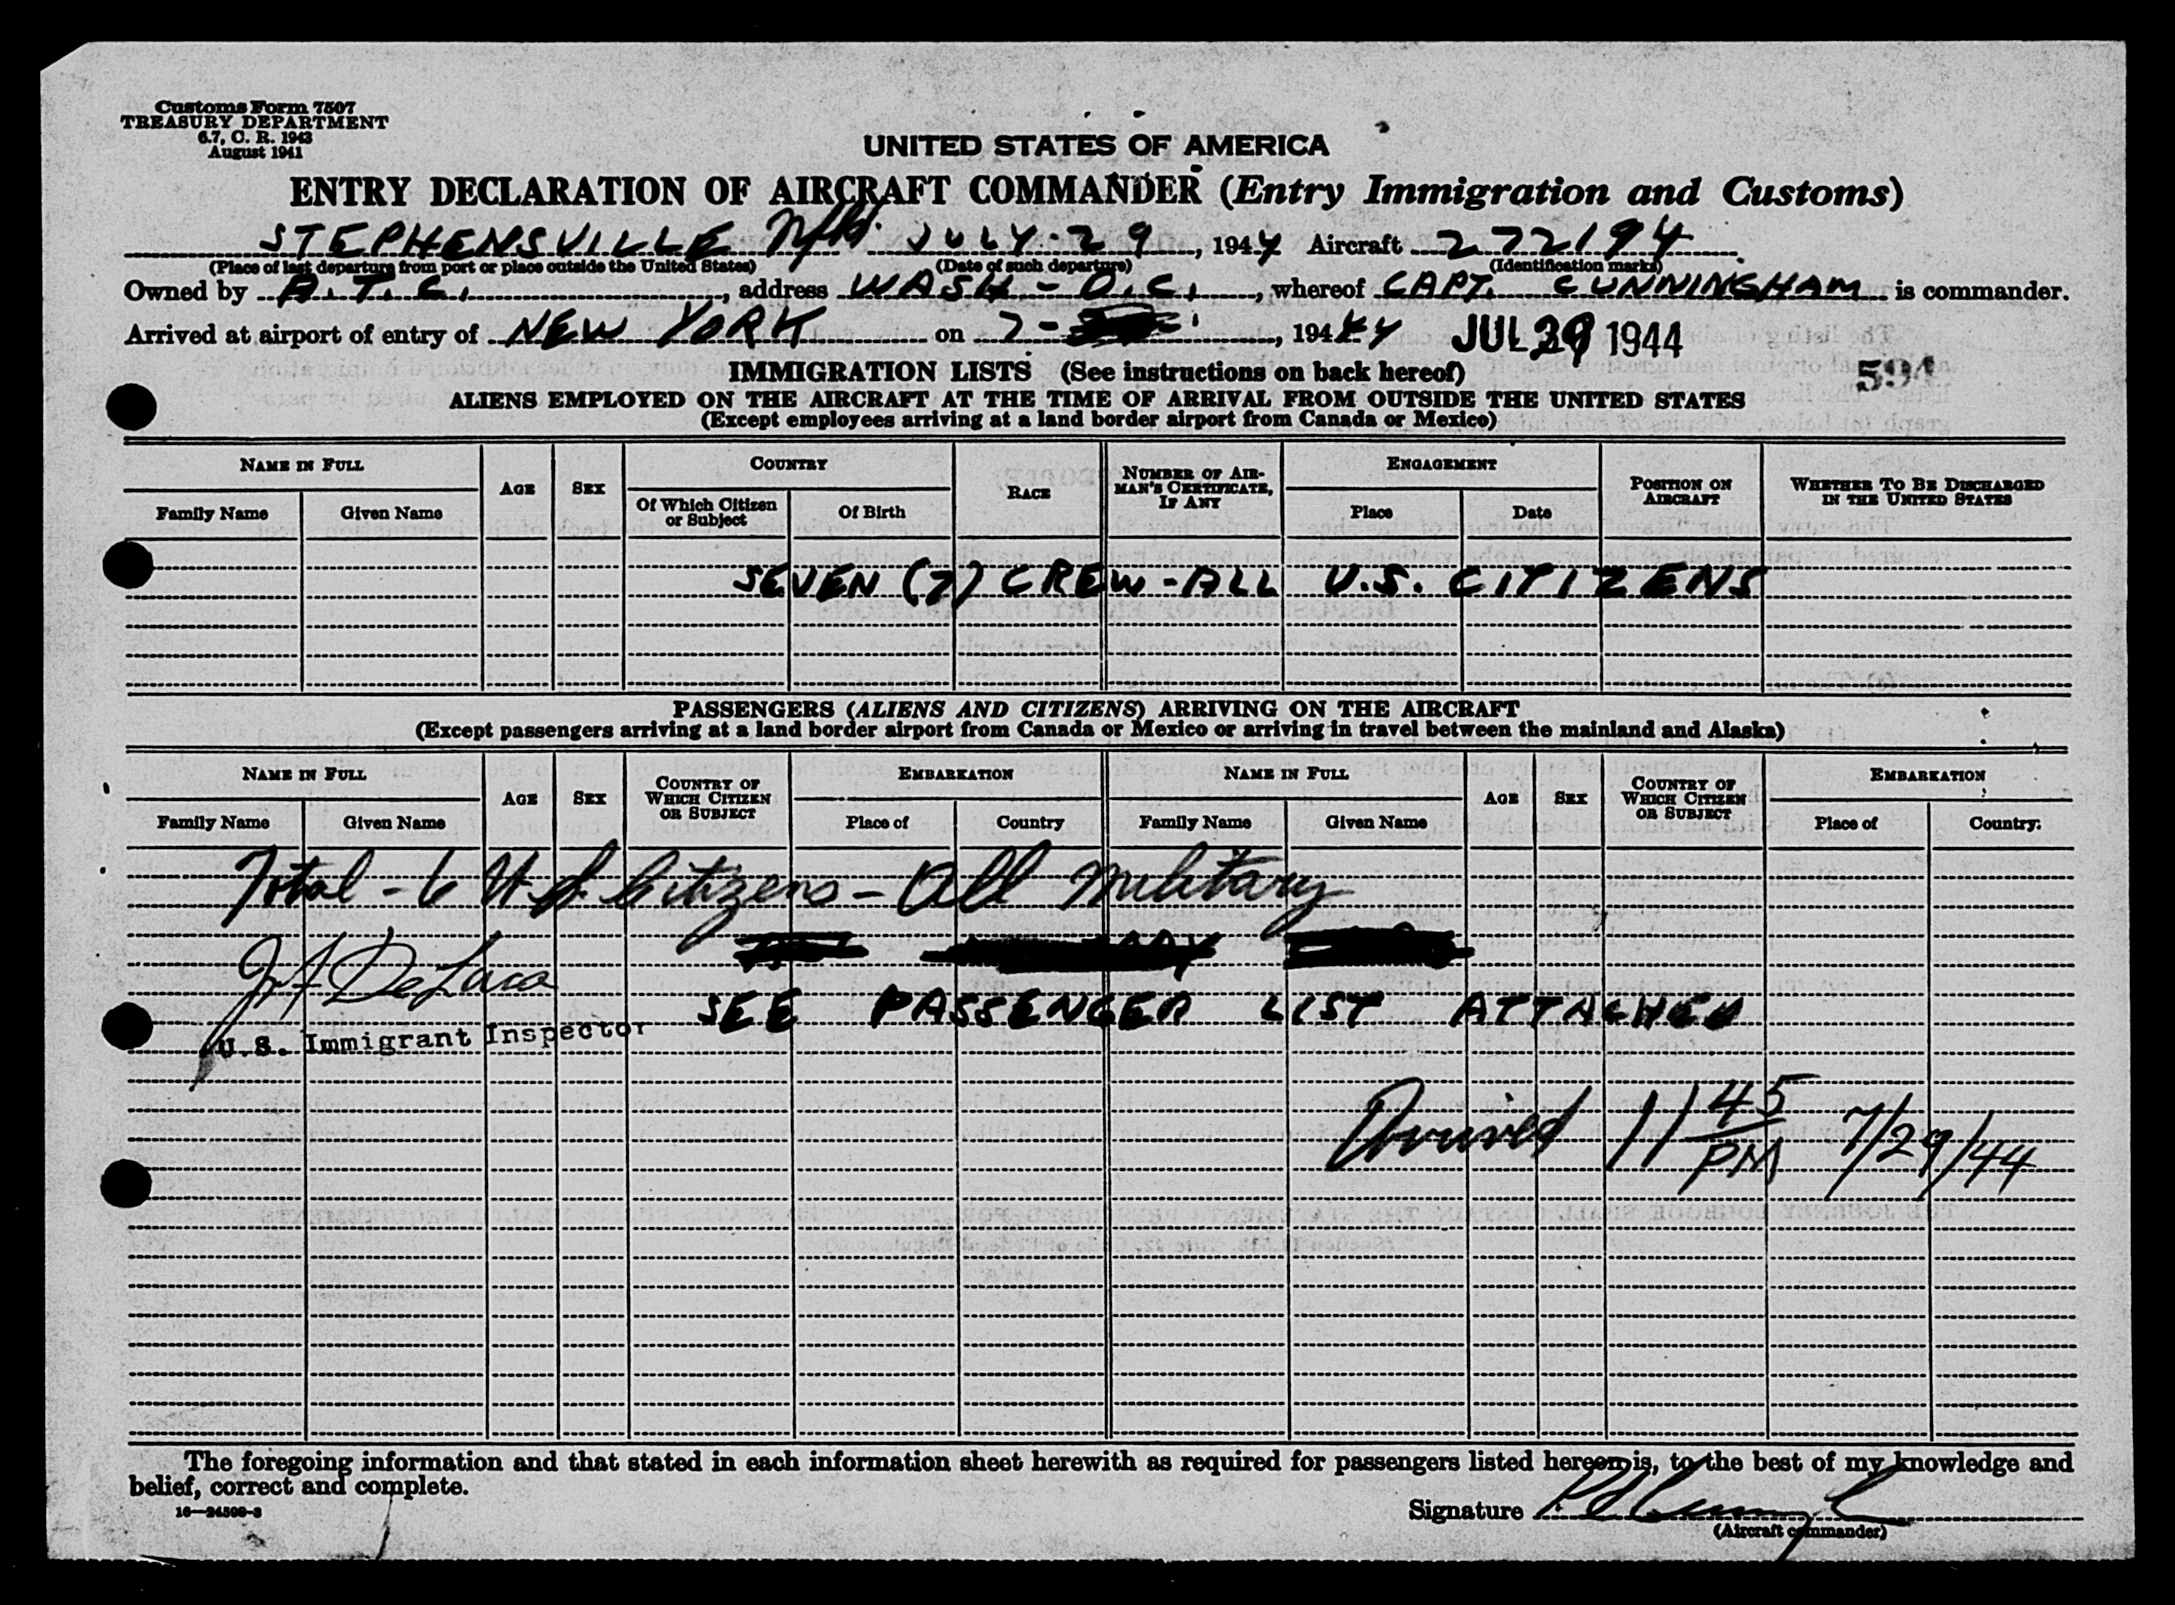 Customs Form 7507
TREASURY DEPARTMENT
6.7, C. R. 1943
August 1941
UNITED STATES OF AMERICA
ENTRY DECLARATION OF AIRCRAFT COMMANDER (Entry Immigration and Customs)
STEPHENSVILLE Nfld. JULY-29, 1944 Aircraft 272194
(Place of last departure from port or place outside the United States) (Date of such departure) (Identification marks)
Owned by A.T.C., address WASH-D.C., whereof CAPT. CUNNINGHAM is commander.
Arrived at airport of entry of NEW YORK on 7-, 1944 JUL 29 1944
IMMIGRATION LISTS (See instructions on back hereof)
594
ALIENS EMPLOYED ON THE AIRCRAFT AT THE TIME OF ARRIVAL FROM OUTSIDE THE UNITED STATES
(Except employees arriving at a land border airport from Canada or Mexico)
NAME IN FULL AGE SEX COUNTRY RACE NUMBER OF AIRMAN'S CERTIFICATE, IF ANY ENGAGEMENT POSITION ON AIRCRAFT WHETHER TO BE DISCHARGED IN THE UNITED STATES
Family Name Given Name Of Which Citizen or Subject Of Birth Place Date
SEVEN (7) CREW-ALL U.S. CITIZENS
PASSENGERS (ALIENS AND CITIZENS) ARRIVING ON THE AIRCRAFT
(Except passengers arriving at a land border airport from Canada or Mexico or arriving in travel between the mainland and Alaska)
NAME IN FULL AGE SEX COUNTRY OF WHICH CITIZEN OR SUBJECT EMBARKATION NAME IN FULL AGE SEX COUNTRY OF WHICH CITIZEN OR SUBJECT EMBARKATION
Family Name Given Name Place of Country Family Name Given Name Place of Country
Total - 6 U.S. Citizens - All Military
DeLaca
SEE PASSENGER LIST ATTACHED
U.S. Immigrant Inspector
Arrived 11 45 PM 7/29/44
The foregoing information and that stated in each information sheet herewith as required for passengers listed hereon is, to the best of my knowledge and
belief, correct and complete.
16—24500-3
Signature
(Aircraft commander)